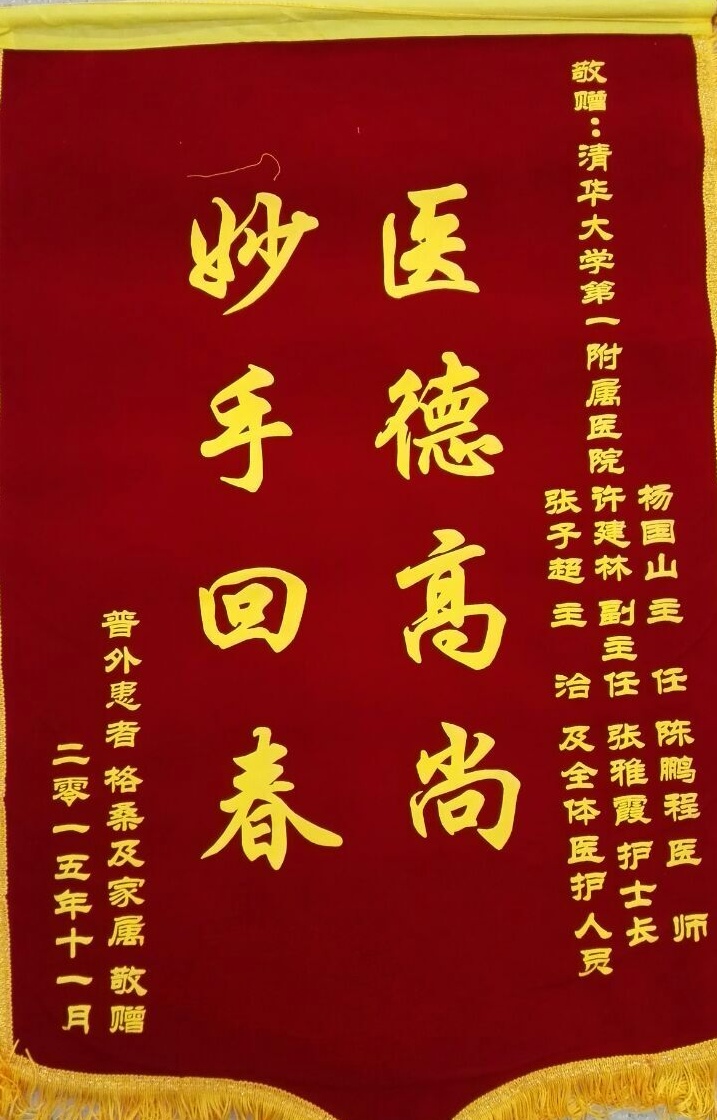 敬赠：清华大学第一附属医院
杨国山主任 陈鹏程医师
许建林副主任 张雅霞护士长
张子超主治 及全体医护人员
医德高尚
妙手回春
普外患者 格桑及家属 敬赠
二零一五年十一月